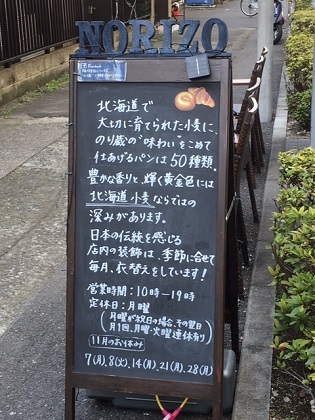 NORIZO
Facebook
北海道で
大切に育てられた小麦に、
のり蔵の"味わい"をこめて
仕あげるパンは50種類。
豊かな香りと、輝く黄金色には
北海道小麦ならではの
深みがあります。
日本の伝統を感じる
店内の装飾は、季節に合せて
毎月、衣替えをしています!
営業時間:10時-19時
定休日:月曜
(月曜が祝日の場合、その翌日
月1回、月曜・火曜連休有り)
11月のお休み
7(月)、8(火)、14(月)、21(月)、28(月)